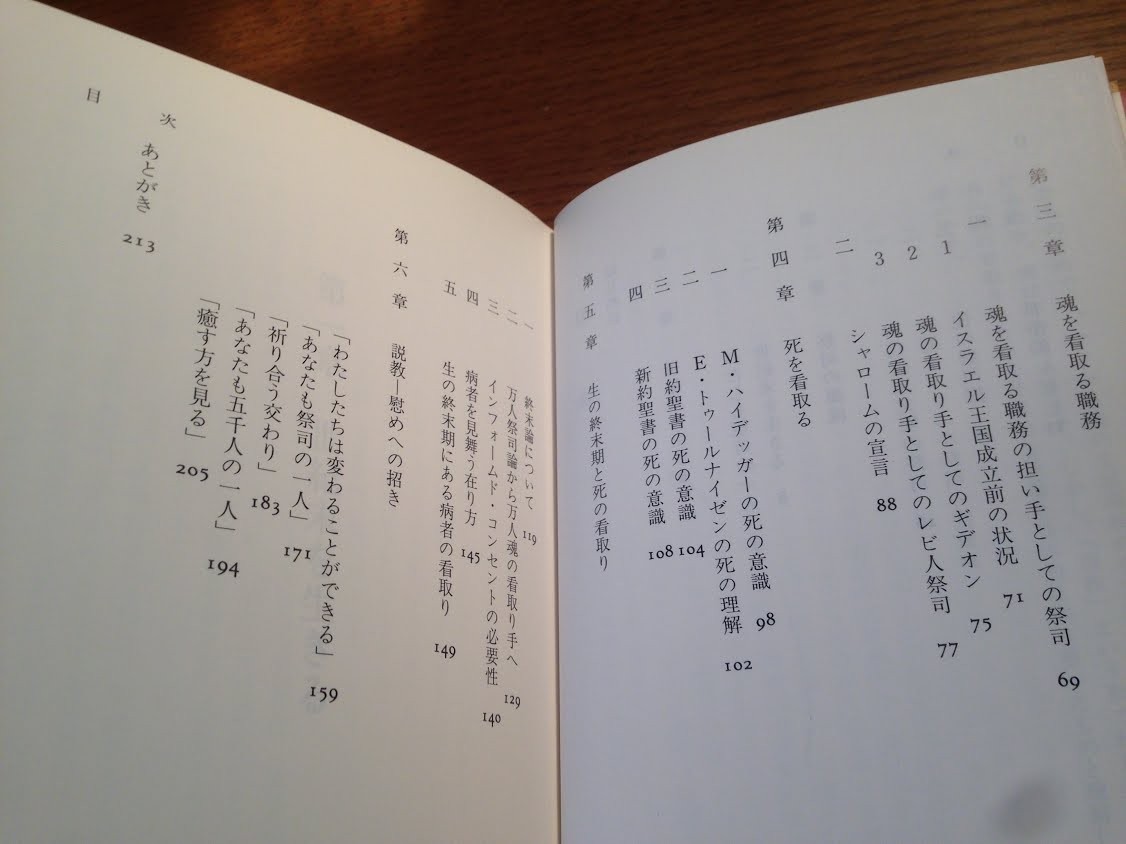 第三章 魂を看取る職務
一 魂を看取る職務の担い手としての祭司 69
1 イスラエル王国成立前の状況 71
2 魂の看取り手としてのギデオン 75
3 魂の看取り手としてのレビ人祭司 77
二 シャロームの宣言 88
第四章 死を看取る
一 M・ハイデッガーの死の意識 98
二 E・トゥールナイゼンの死の理解 102
三 旧約聖書の死の意識 104
四 新約聖書の死の意識 108
第五章 生の終末期と死の看取り
一 終末論について 119
二 万人祭司論から万人魂の看取り手へ 129
三 インフォームド・コンセントの必要性 140
四 病者を見舞う在り方 145
五 生の終末期にある病者の看取り 149
第六章 説教―慰めへの招き
「わたしたちは変わることができる」 159
「あなたも祭司の一人」 171
「祈り合う交わり」 183
「あなたも五千人の一人」 194
「癒す方を見る」 205
あとがき 213
目次